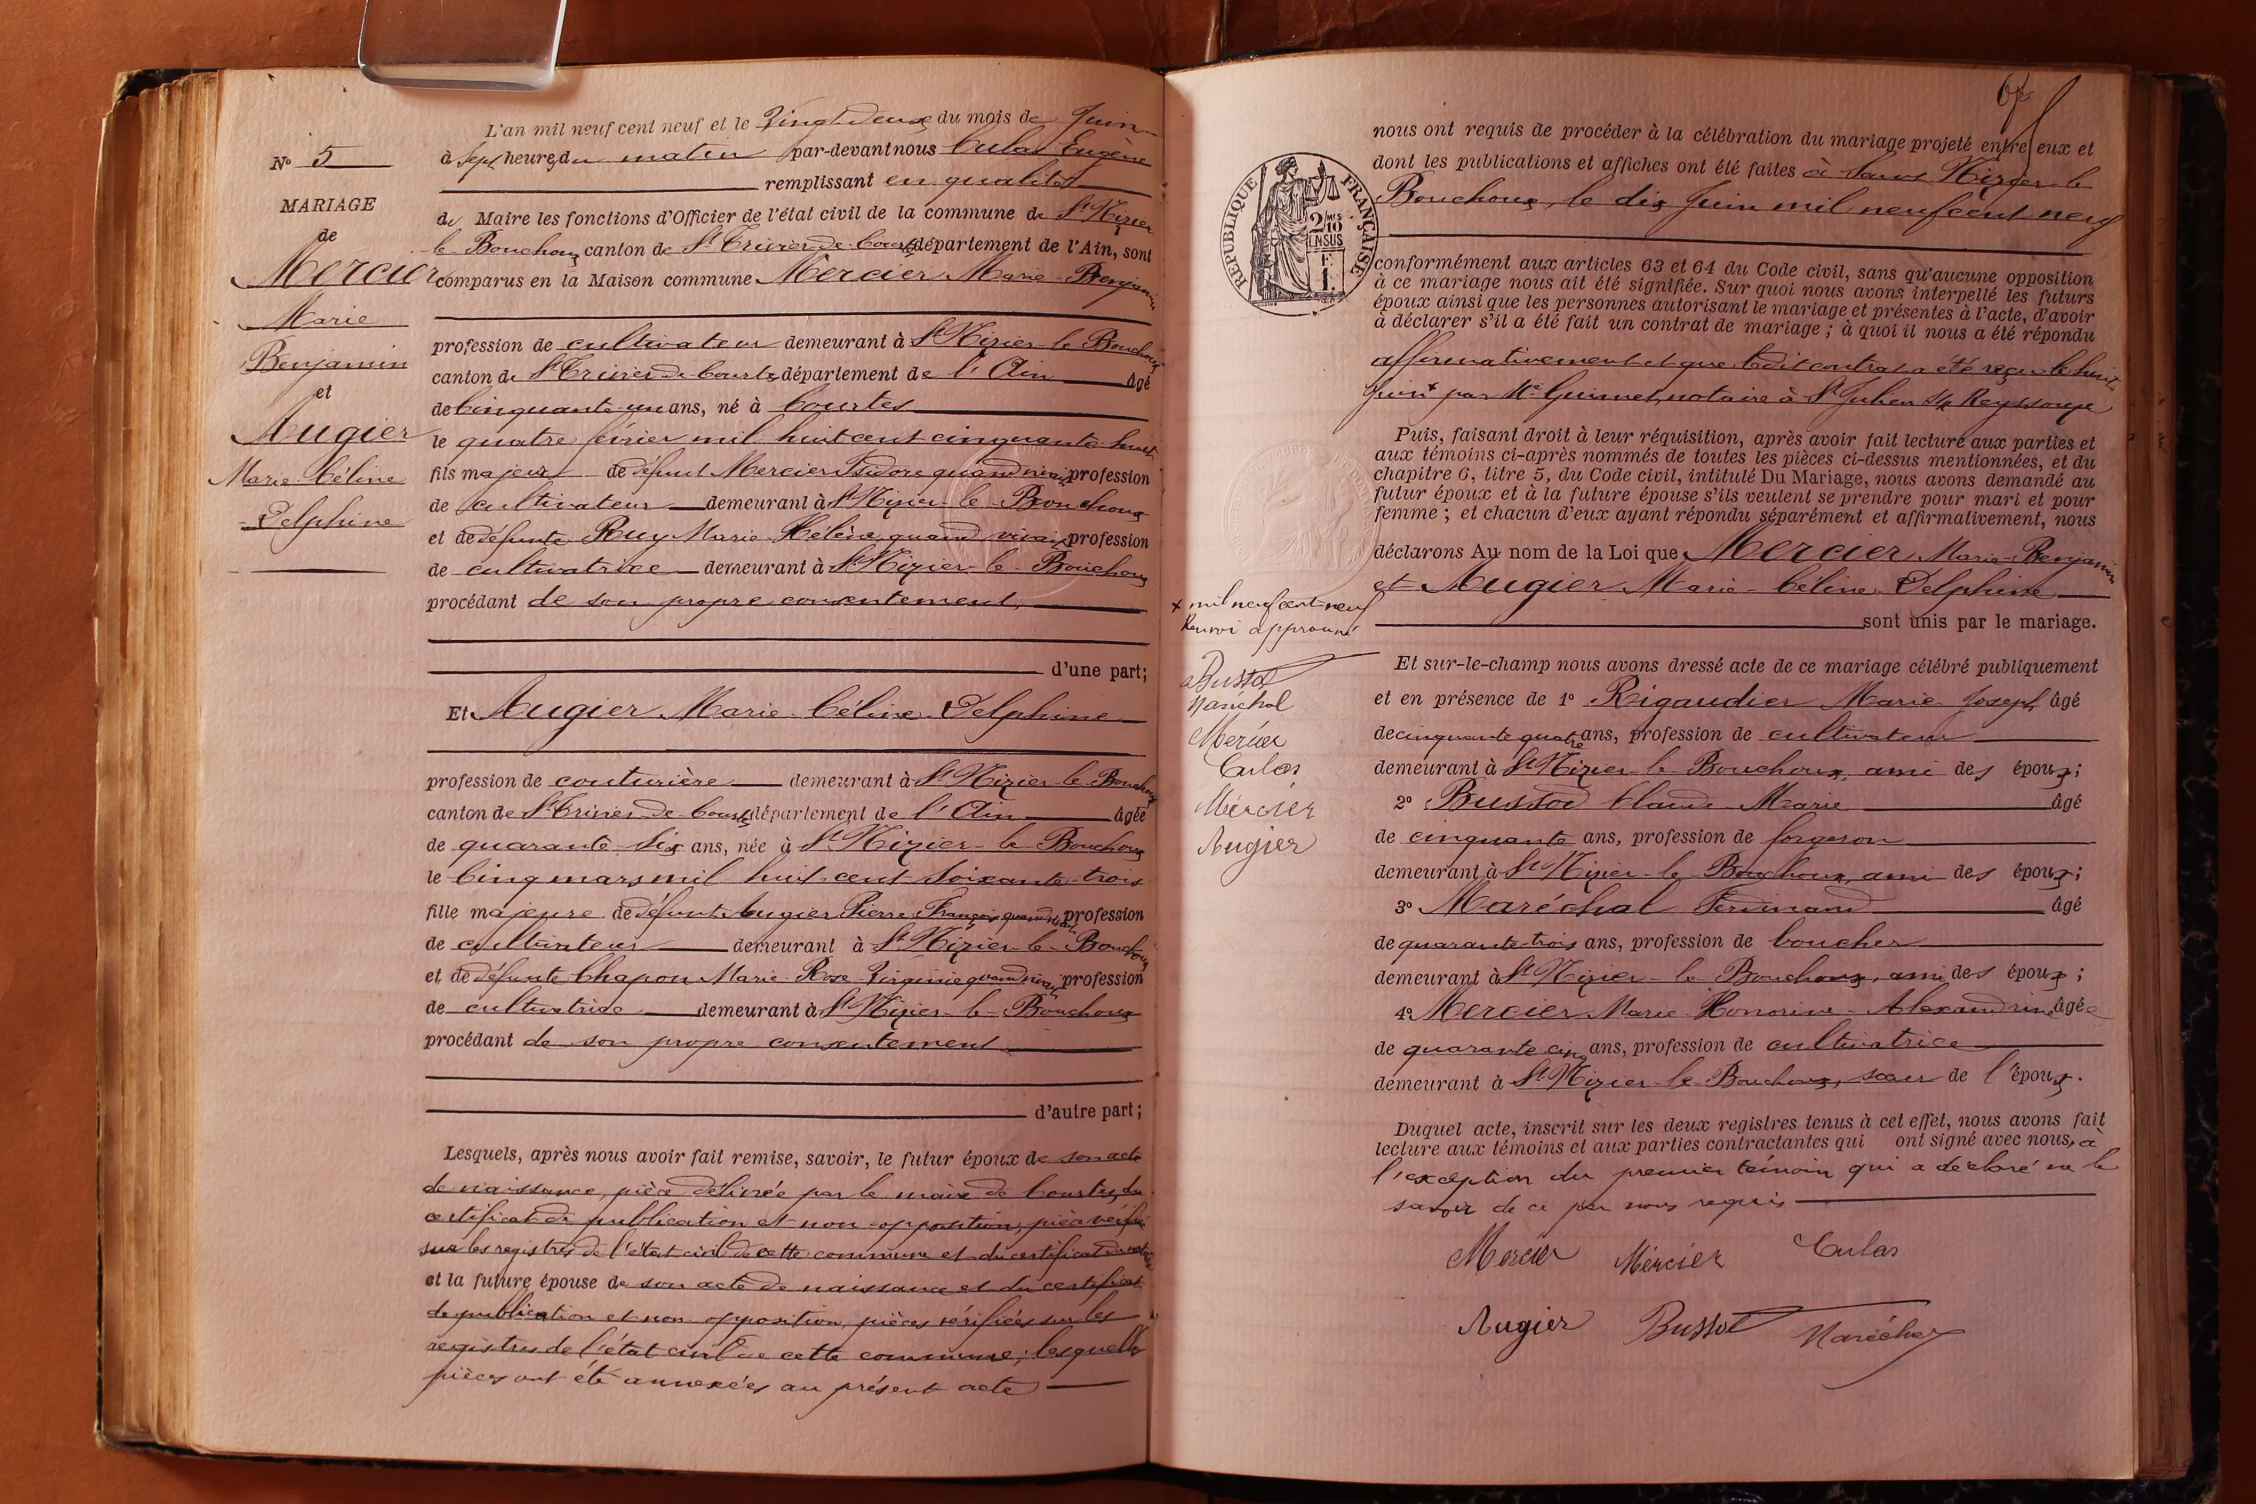 N° 5
MARIAGE
de
Mercier
Marie
Benjamin
et
Augier
Marie Céline
Delphine
L'an mil neuf cent neuf et le Vingt deux du mois de Juin
à sept heures du matin par-devant nous Culas Eugène
remplissant en qualité
de Maire les fonctions d'Officier de l'état civil de la commune de St Nizier
le Bouchoux canton de St Trivier de Courtes département de l'Ain, sont
comparus en la Maison commune Mercier Marie-Benjamin
profession de cultivateur demeurant à St Nizier le Bouchoux
canton de St Trivier de Courtes département de l'Ain âgé
de Cinquante-un ans, né à Courtes
le quatre février mil huit cent cinquante-huit
fils majeur de défunt Mercier Isidore quand vivait profession
de cultivateur demeurant à St Nizier-le-Bouchoux
et de défunte Ruy Marie Hélène quand vivait profession
de cultivatrice demeurant à St Nizier-le-Bouchoux
procédant de son propre consentement,
d'une part;
Et Augier Marie Céline Delphine
profession de couturière demeurant à St Nizier le Bouchoux
canton de St Trivier de Courtes département de l'Ain âgée
de quarante-six ans, née à St Nizier-le-Bouchoux
le Cinq mars mil huit-cent soixante-trois
fille majeure de défunt Augier Pierre François quand vivait profession
de cultivateur demeurant à St Nizier-le-Bouchoux
et de défunte Chapon Marie-Rose Virginie quand vivait profession
de cultivatrice demeurant à St Nizier-le-Bouchoux
procédant de son propre consentement
d'autre part;
Lesquels, après nous avoir fait remise, savoir, le futur époux de son acte
de naissance, pièce délivrée par le maire de Courtes, du
certificat de publication et non-opposition, pièce vérifiée
sur les registres de l'état civil de cette commune et du certificat de notaire
et la future épouse de son acte de naissance et du certificat
de publication et non opposition, pièces vérifiées sur les
registres de l'état civil de cette commune; lesquelles
pièces ont été annexées au présent acte
RÉPUBLIQUE FRANÇAISE
2/10
EN SUS
1 F
nous ont requis de procéder à la célébration du mariage projeté entre eux et
dont les publications et affiches ont été faites à Saint Nizier-le
Bouchoux, le dix Juin mil neuf cent neuf
conformément aux articles 63 et 64 du Code civil, sans qu'aucune opposition
à ce mariage nous ait été signifiée. Sur quoi nous avons interpellé les futurs
époux ainsi que les personnes autorisant le mariage et présentes à l'acte, d'avoir
à déclarer s'il a été fait un contrat de mariage; à quoi il nous a été répondu
affirmativement et que ledit contrat a été reçu le huit
Juin + par Me Guimet, notaire à St Julien S/s Reyssouze
Puis, faisant droit à leur réquisition, après avoir fait lecture aux parties et
aux témoins ci-après nommés de toutes les pièces ci-dessus mentionnées, et du
chapitre 6, titre 5, du Code civil, intitulé Du Mariage, nous avons demandé au
futur époux et à la future épouse s'ils veulent se prendre pour mari et pour
femme; et chacun d'eux ayant répondu séparément et affirmativement, nous
déclarons Au nom de la Loi que Mercier Marie-Benjamin
et Augier Marie-Céline Delphine
sont unis par le mariage.
+ mil neuf cent neuf
Renvoi approuvé
Bussod
Maréchal
Mercier
Culas
Mercier
Augier
Et sur-le-champ nous avons dressé acte de ce mariage célébré publiquement
et en présence de 1° Rigaudier Marie Joseph âgé
de cinquante quatre ans, profession de cultivateur
demeurant à St Nizier-le-Bouchoux, ami des époux;
2° Bussod Claude Marie âgé
de cinquante ans, profession de forgeron
demeurant à St Nizier-le-Bouchoux, ami des époux;
3° Maréchal Ferdinand âgé
de quarante-trois ans, profession de boucher
demeurant à St Nizier-le-Bouchoux, ami des époux;
4° Mercier Marie Honorine-Alexandrine âgée
de quarante cinq ans, profession de cultivatrice
demeurant à St Nizier-le-Bouchoux, sœur de l'époux.
Duquel acte, inscrit sur les deux registres tenus à cet effet, nous avons fait
lecture aux témoins et aux parties contractantes qui ont signé avec nous, à
l'exception du premier témoin qui a déclaré ne le
savoir de ce par nous requis
Mercier Mercier Culas
Augier Bussod Maréchal